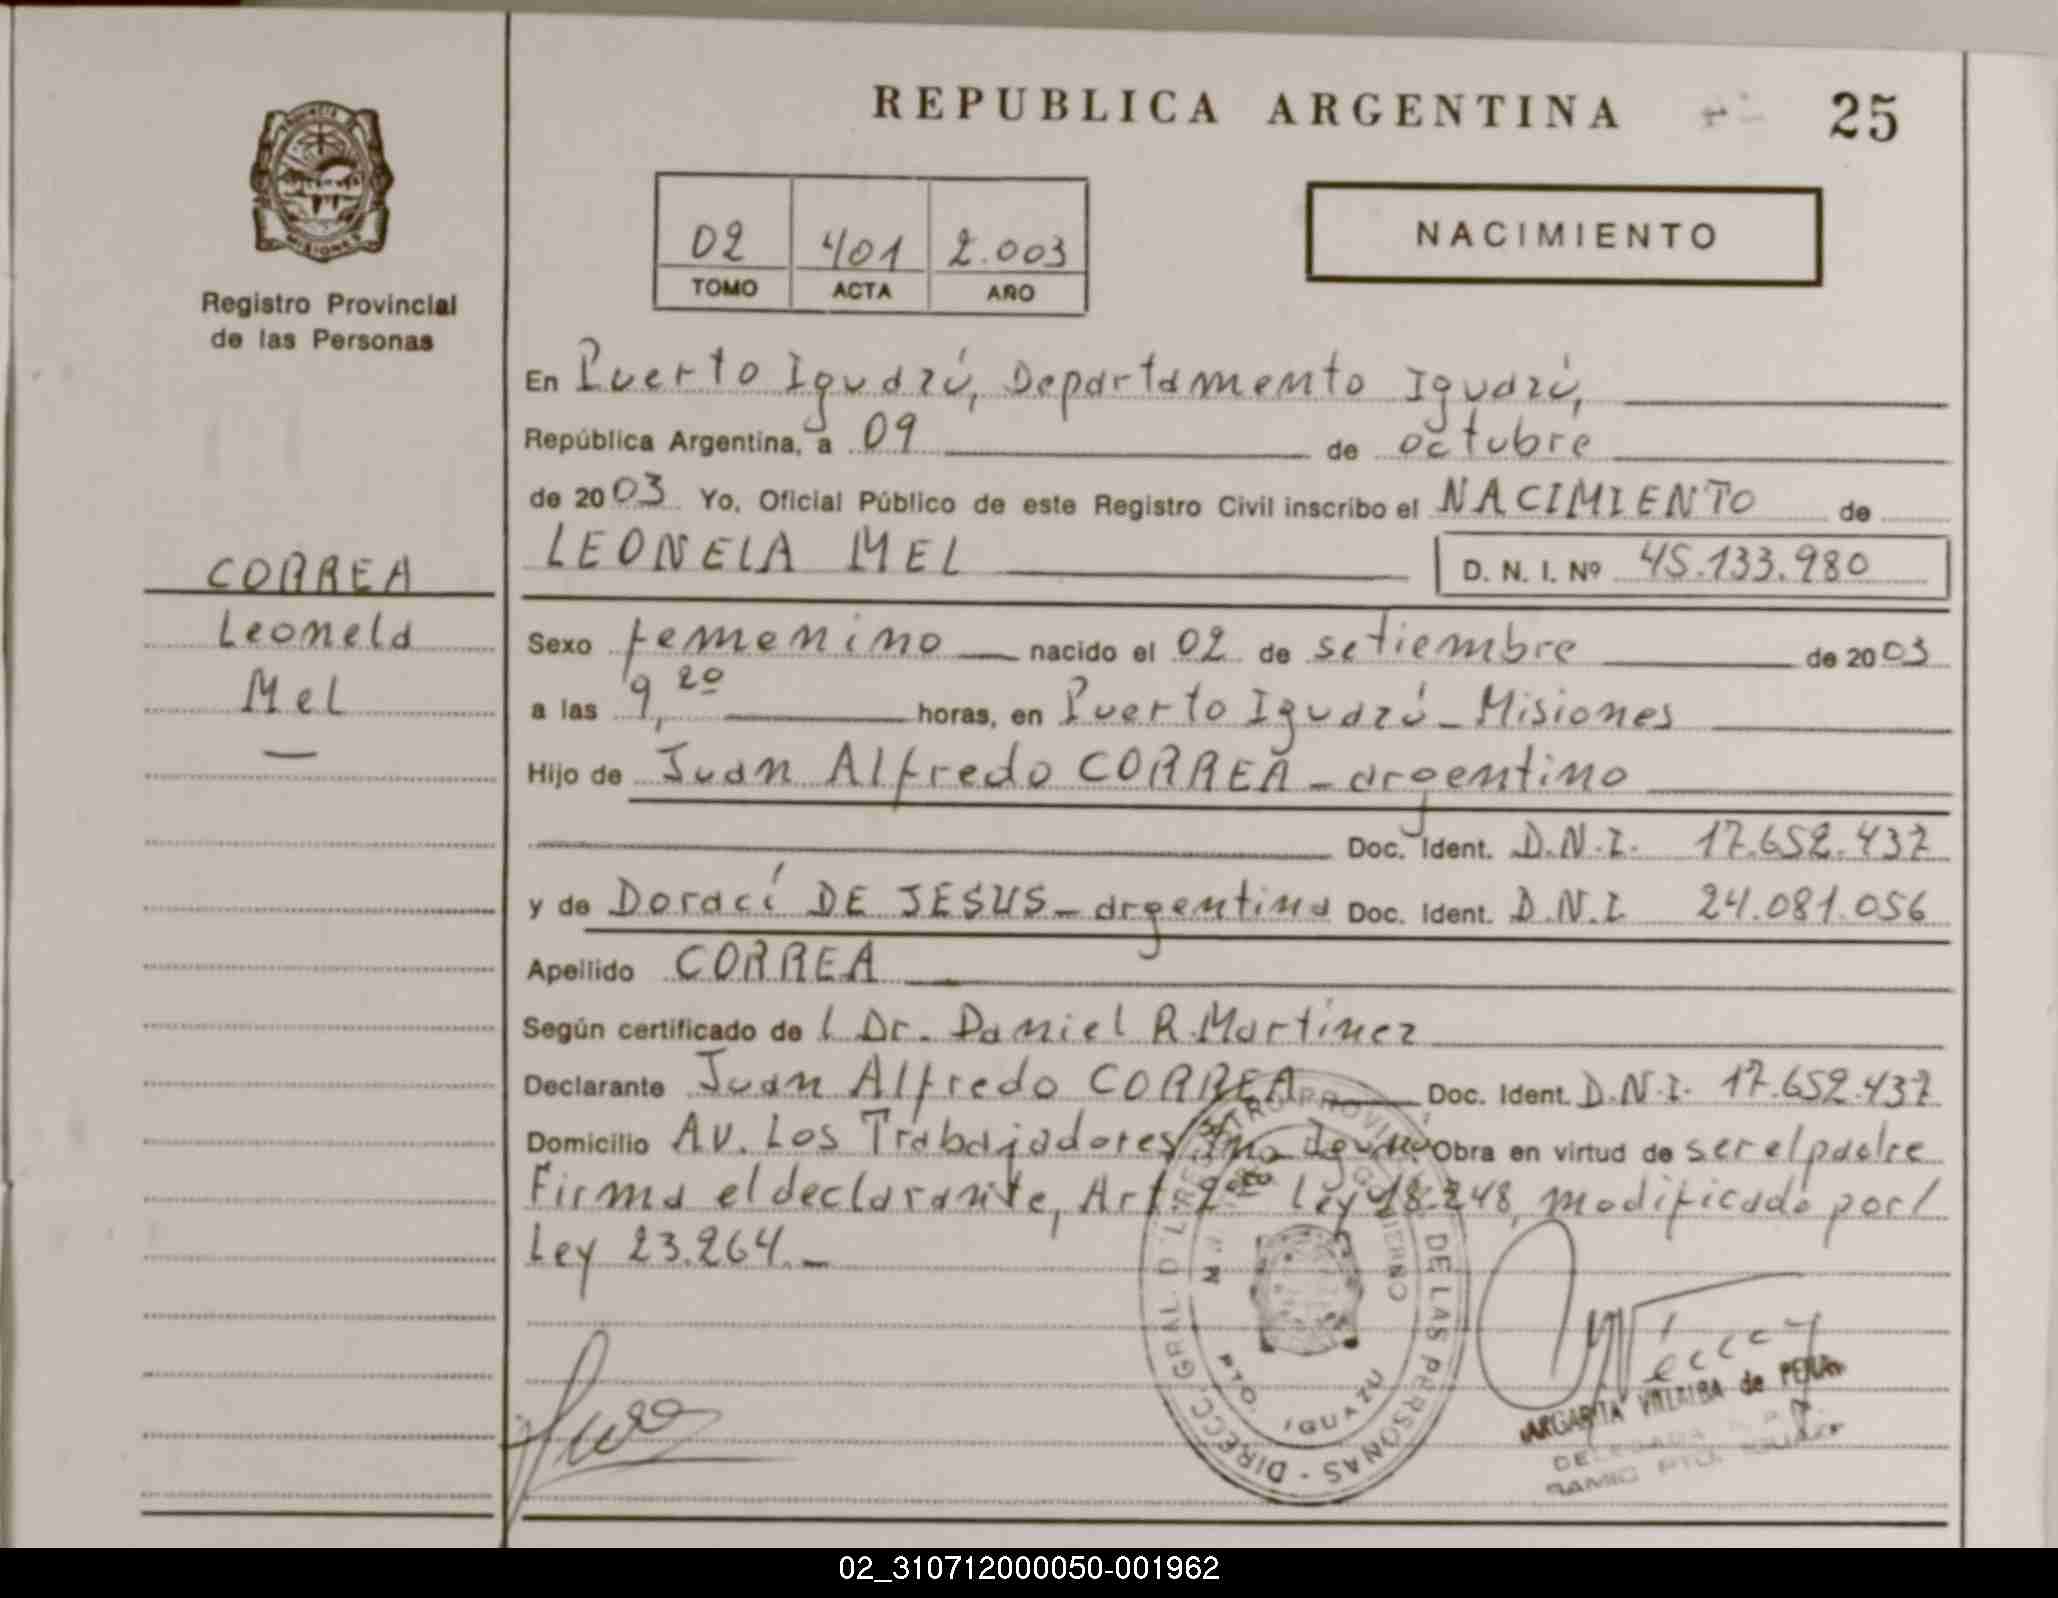 REPUBLICA ARGENTINA 25
PROVINCIA DE
MISIONES
Registro Provincial
de las Personas
02 401 2.003
TOMO ACTA AÑO
NACIMIENTO
En Puerto Iguazú, Departamento Iguazú,
República Argentina, a 09 de octubre
de 2003 Yo, Oficial Público de este Registro Civil inscribo el NACIMIENTO de
LEONELA MEL D. N. I. Nº 45.133.980
CORREA
Leonela
Mel
Sexo femenino nacido el 02 de setiembre de 2003
a las 9,20 horas, en Puerto Iguazú - Misiones
Hijo de Juan Alfredo CORREA - argentino
Doc. Ident. D.N.I. 17.652.437
y de Doraci DE JESUS - argentina Doc. Ident. D.N.I. 24.081.056
Apellido CORREA
Según certificado de l Dr. Daniel R. Martínez
Declarante Juan Alfredo CORREA Doc. Ident. D.N.I. 17.652.437
Domicilio Av. Los Trabajadores Obra en virtud de ser el padre
Firma el declarante, Art. 2º Ley 18.248, modificado por/
Ley 23.264.-
DIRECC. GRAL. D L REGISTRO PROVINCIAL DE LAS PERSONAS -
GOBIERNO
PTO. IGUAZU
MARGARITA VILLALBA de PEÑA
DELEGADA
PTO. IGUAZU
02_310712000050-001962